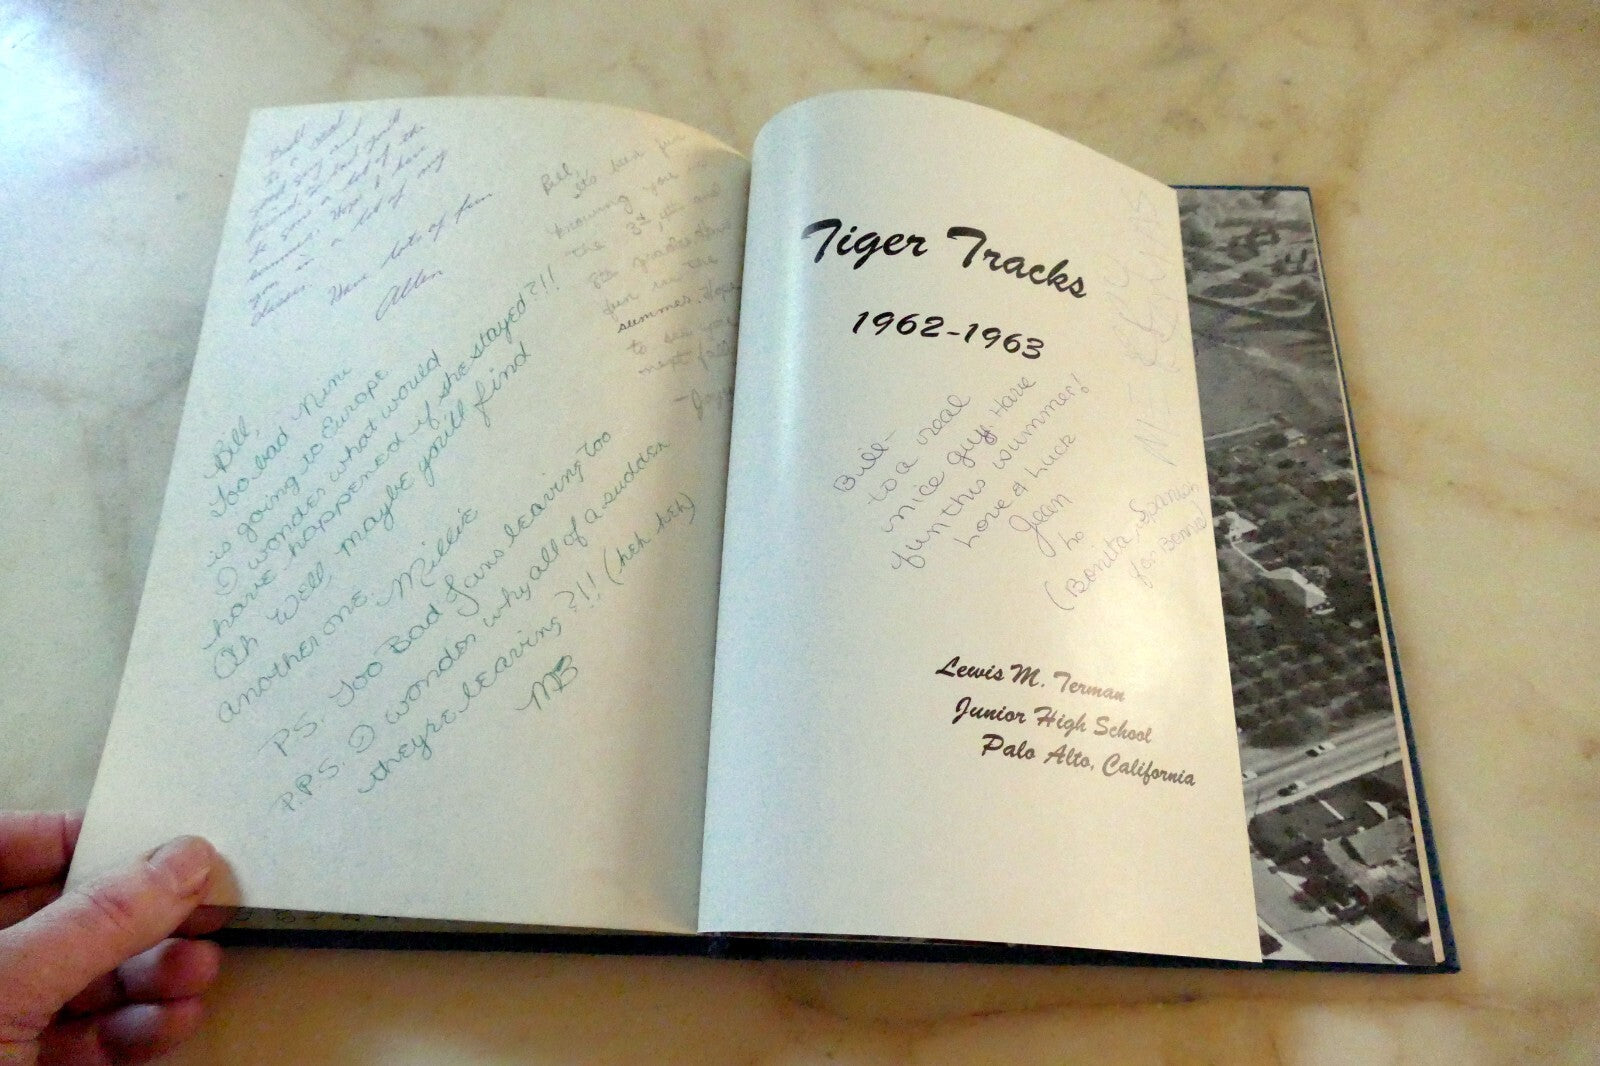 Bill
To a real
good guy and
friend. To bad you'll
be gone a lot of the
summer. Hope I have
you in a lot of my
classes.
Have lots of fun
Allen
Bill,
It's been fun
knowing you in
the 3rd, 4th and
8th grades. Have
fun in the
summer. Hope
to see you
next fall
Bill,
Too bad Nini
is going to Europe
I wonder what would
have happened if she stayed?!!
Oh Well, maybe you'll find
another one. Millie
PS. Too Bad Jans leaving too
P.P.S. I wonder why all of a sudden
they're leaving?!!! (heh heh)
MB
Tiger Tracks
1962-1963
Bill-
to a real
nice guy. Have
fun this summer!
Love & Luck
Jean
(Bonita, Spanish
for Bonnie)
Lewis M. Terman
Junior High School
Palo Alto, California